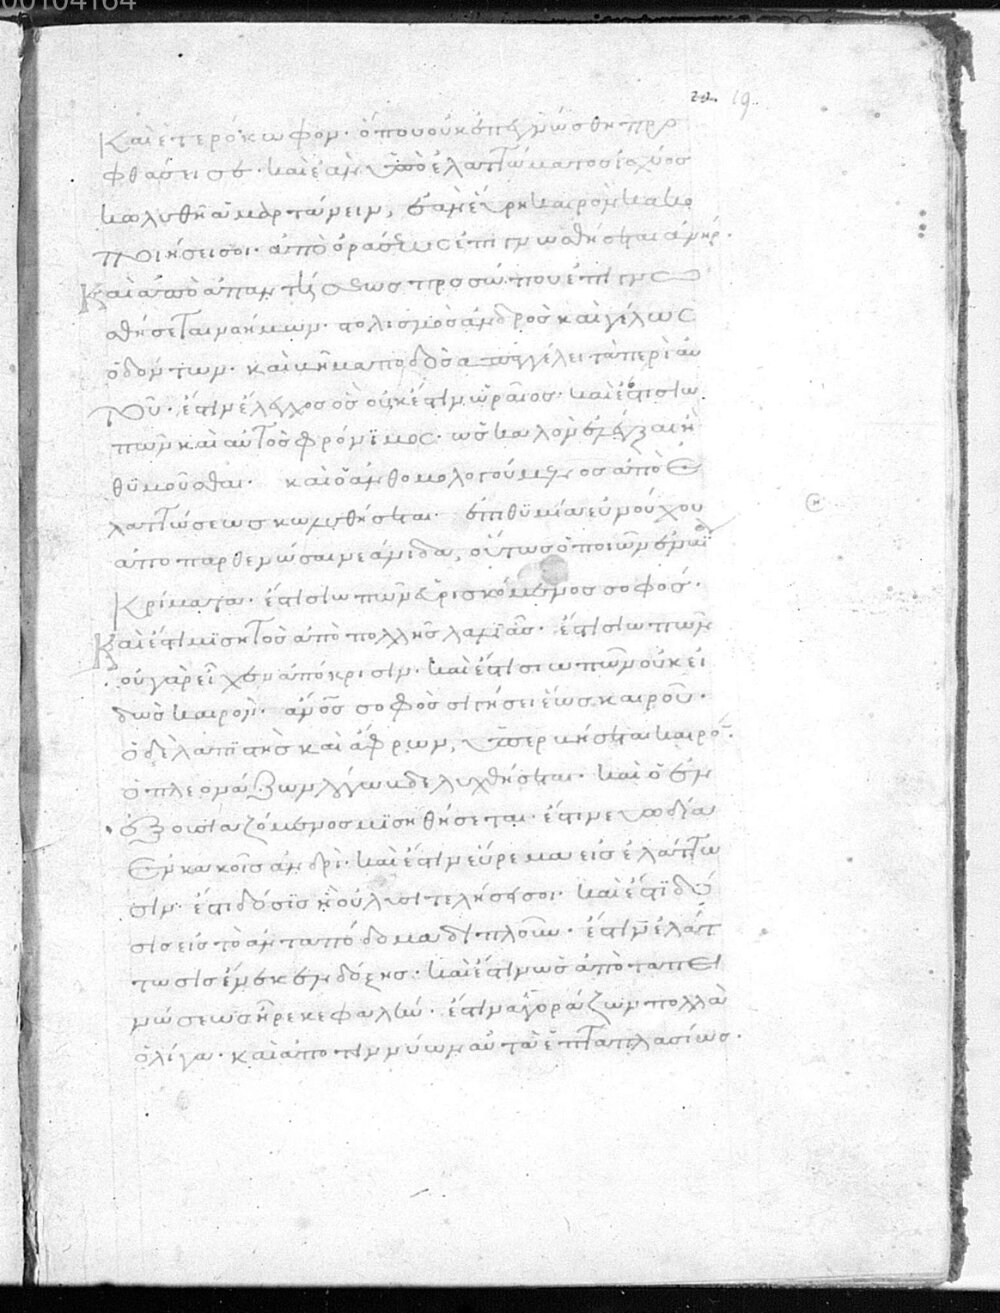 00104164
19
Καὶ ἑτερόκωφον· ὅπου οὐκ ἐπεγνώσθη προ
φθάσει σέ· καὶ ἐὰν ὑπὸ ἐλαττώματος ἰσχύος
κωλυθῆ ἁμαρτάνειν, ἐὰν εὕρη καιρὸν κακο
ποιήσει σοι· ἀπὸ ὁράσεως ἐπιγνωσθήσεται ἀνήρ·
Καὶ ἀπὸ ἀπαντήσεως προσώπου ἐπιγνω
σθήσεται νοήμων· στολισμὸς ἀνδρὸς καὶ γέλως
ὀδόντων· καὶ βῆμα ποδὸς ἀναγγέλει τὰ περὶ αὐ
τοῦ· ἔστιν ἔλεγχος ὃς οὐκ ἔστιν ὡραῖος· καὶ ἔστι σιω
πῶν καὶ αὐτὸς φρόνιμος· ὡς καλὸν ἐλέγξαι ἢ
θυμοῦσθαι· καὶ ὁ ἀνθομολογούμενος ἀπὸ ἐ
λαττώσεως κωλυθήσεται· ἐπιθυμία εὐνούχου
ἀποπαρθενῶσαι νεάνιδα, οὕτως ὁ ποιῶν ἐν βία
κρίματα· ἔστι σιωπῶν εὑρισκόμενος σοφός·
Καὶ ἔστι μισητὸς ἀπὸ πολλῆς λαλιᾶς· ἔστι σιωπῶν
οὐ γὰρ ἔχει ἀπόκρισιν· καὶ ἔστι σιωπῶν οὐκ εἰ
δὼς καιρόν· ἄνος σοφὸς σιγήσει ἕως καιροῦ·
ὁ δὲ λαπιστὴς καὶ ἄφρων, ὑπερβήσεται καιρόν·
ὁ πλεονάζων λόγω βδελυχθήσεται· καὶ ὁ ἐν
εξουσιαζόμενος μισηθήσεται· ἔστιν εὐοδία
ἐν κακοῖς ἀνδρί· καὶ ἔστιν εὕρεμα εἰς ἐλάττω
σιν· ἔστι δόσις ἣ οὐ λυσιτελήσει σοι· καὶ ἔστι δό
σις εἰς τὸ ἀνταπόδομα διπλοῦν· ἔστιν ἐλάτ
τωσις ἕνεκεν δόξης· καὶ ἔστιν ὡς ἀπὸ ταπει
νώσεως ἦρε κεφαλήν· ἔστιν ἀγοράζων πολλὰ
ὀλίγα· καὶ ἀποτιννύων αὐτὰ ἑπταπλασίως·